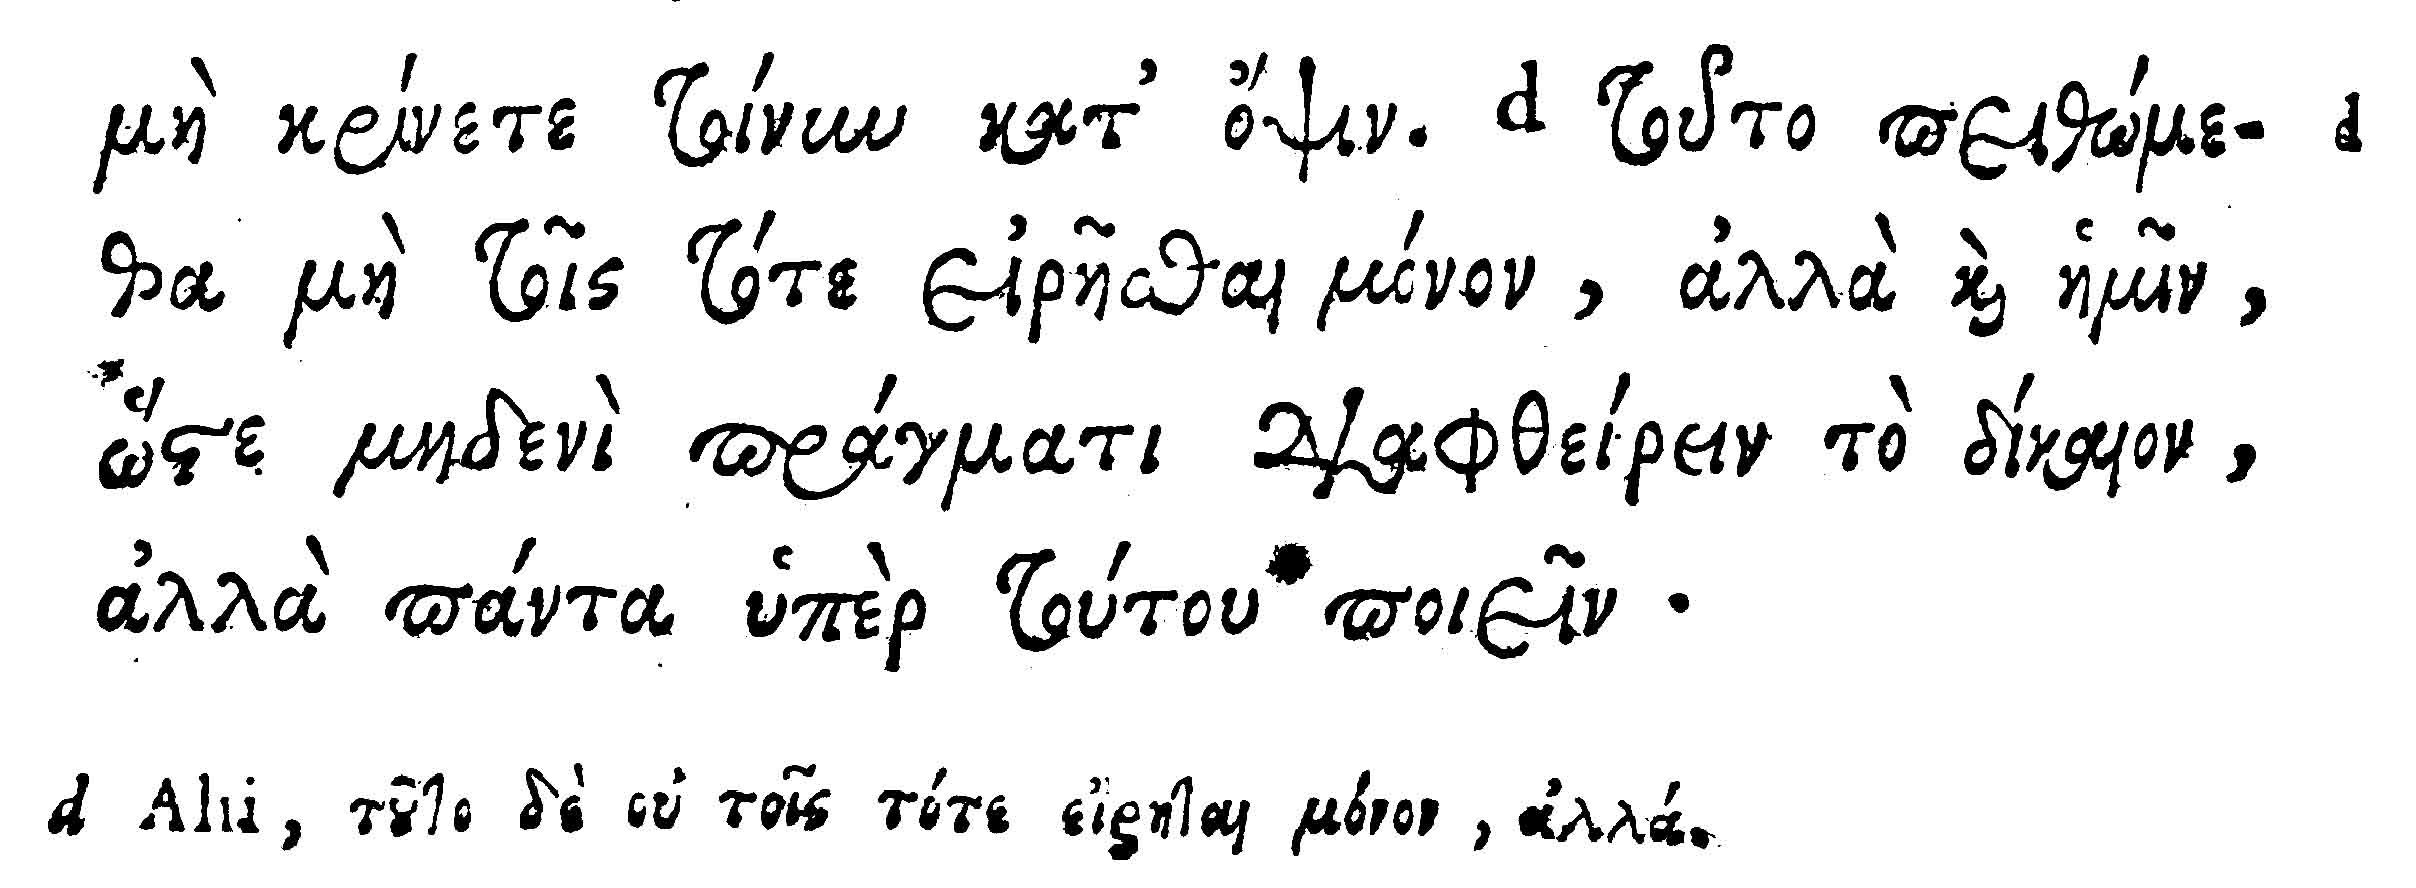 μὴ κρίνετε τοίνυν κατ᾽ ὄψιν. d τοῦτο πειθώμε- d
θα μὴ τοῖς τότε εἰρῆσθαι μόνον, ἀλλὰ ϗ̀ ἡμῖν,
ὥστε μηδενὶ πράγματι διαφθείρειν τὸ δίκαιον,
ἀλλὰ πάντα ὑπὲρ τούτου ποιεῖν.
d Alii, τοῦτο δὲ οὐ τοῖς τότε εἴρηται μόνον, ἀλλά.